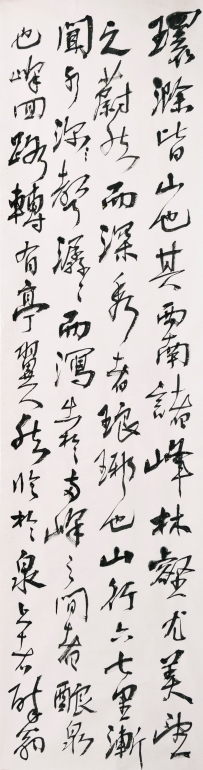 環滁皆山也其西南諸峰林壑尤美望
之蔚然而深秀者琅琊也山行六七里漸
聞水深聲潺潺而瀉出於兩峰之間者釀泉
也峰回路轉有亭翼然臨於泉上者醉翁